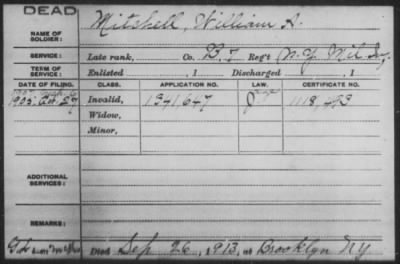 DEAD
NAME OF SOLDIER: Mitchell, William H.
SERVICE: Late rank, Co. B. 7 Reg't N.Y. Mil. Inf.
TERM OF SERVICE: Enlisted , 1 Discharged , 1
DATE OF FILING. CLASS. APPLICATION NO. LAW. CERTIFICATE NO.
1905. Oct. 27 Invalid, 1341,647 1118,493
Widow,
Minor,
ADDITIONAL SERVICES:
REMARKS:
Died Sep. 26, 1913, at Brooklyn NY